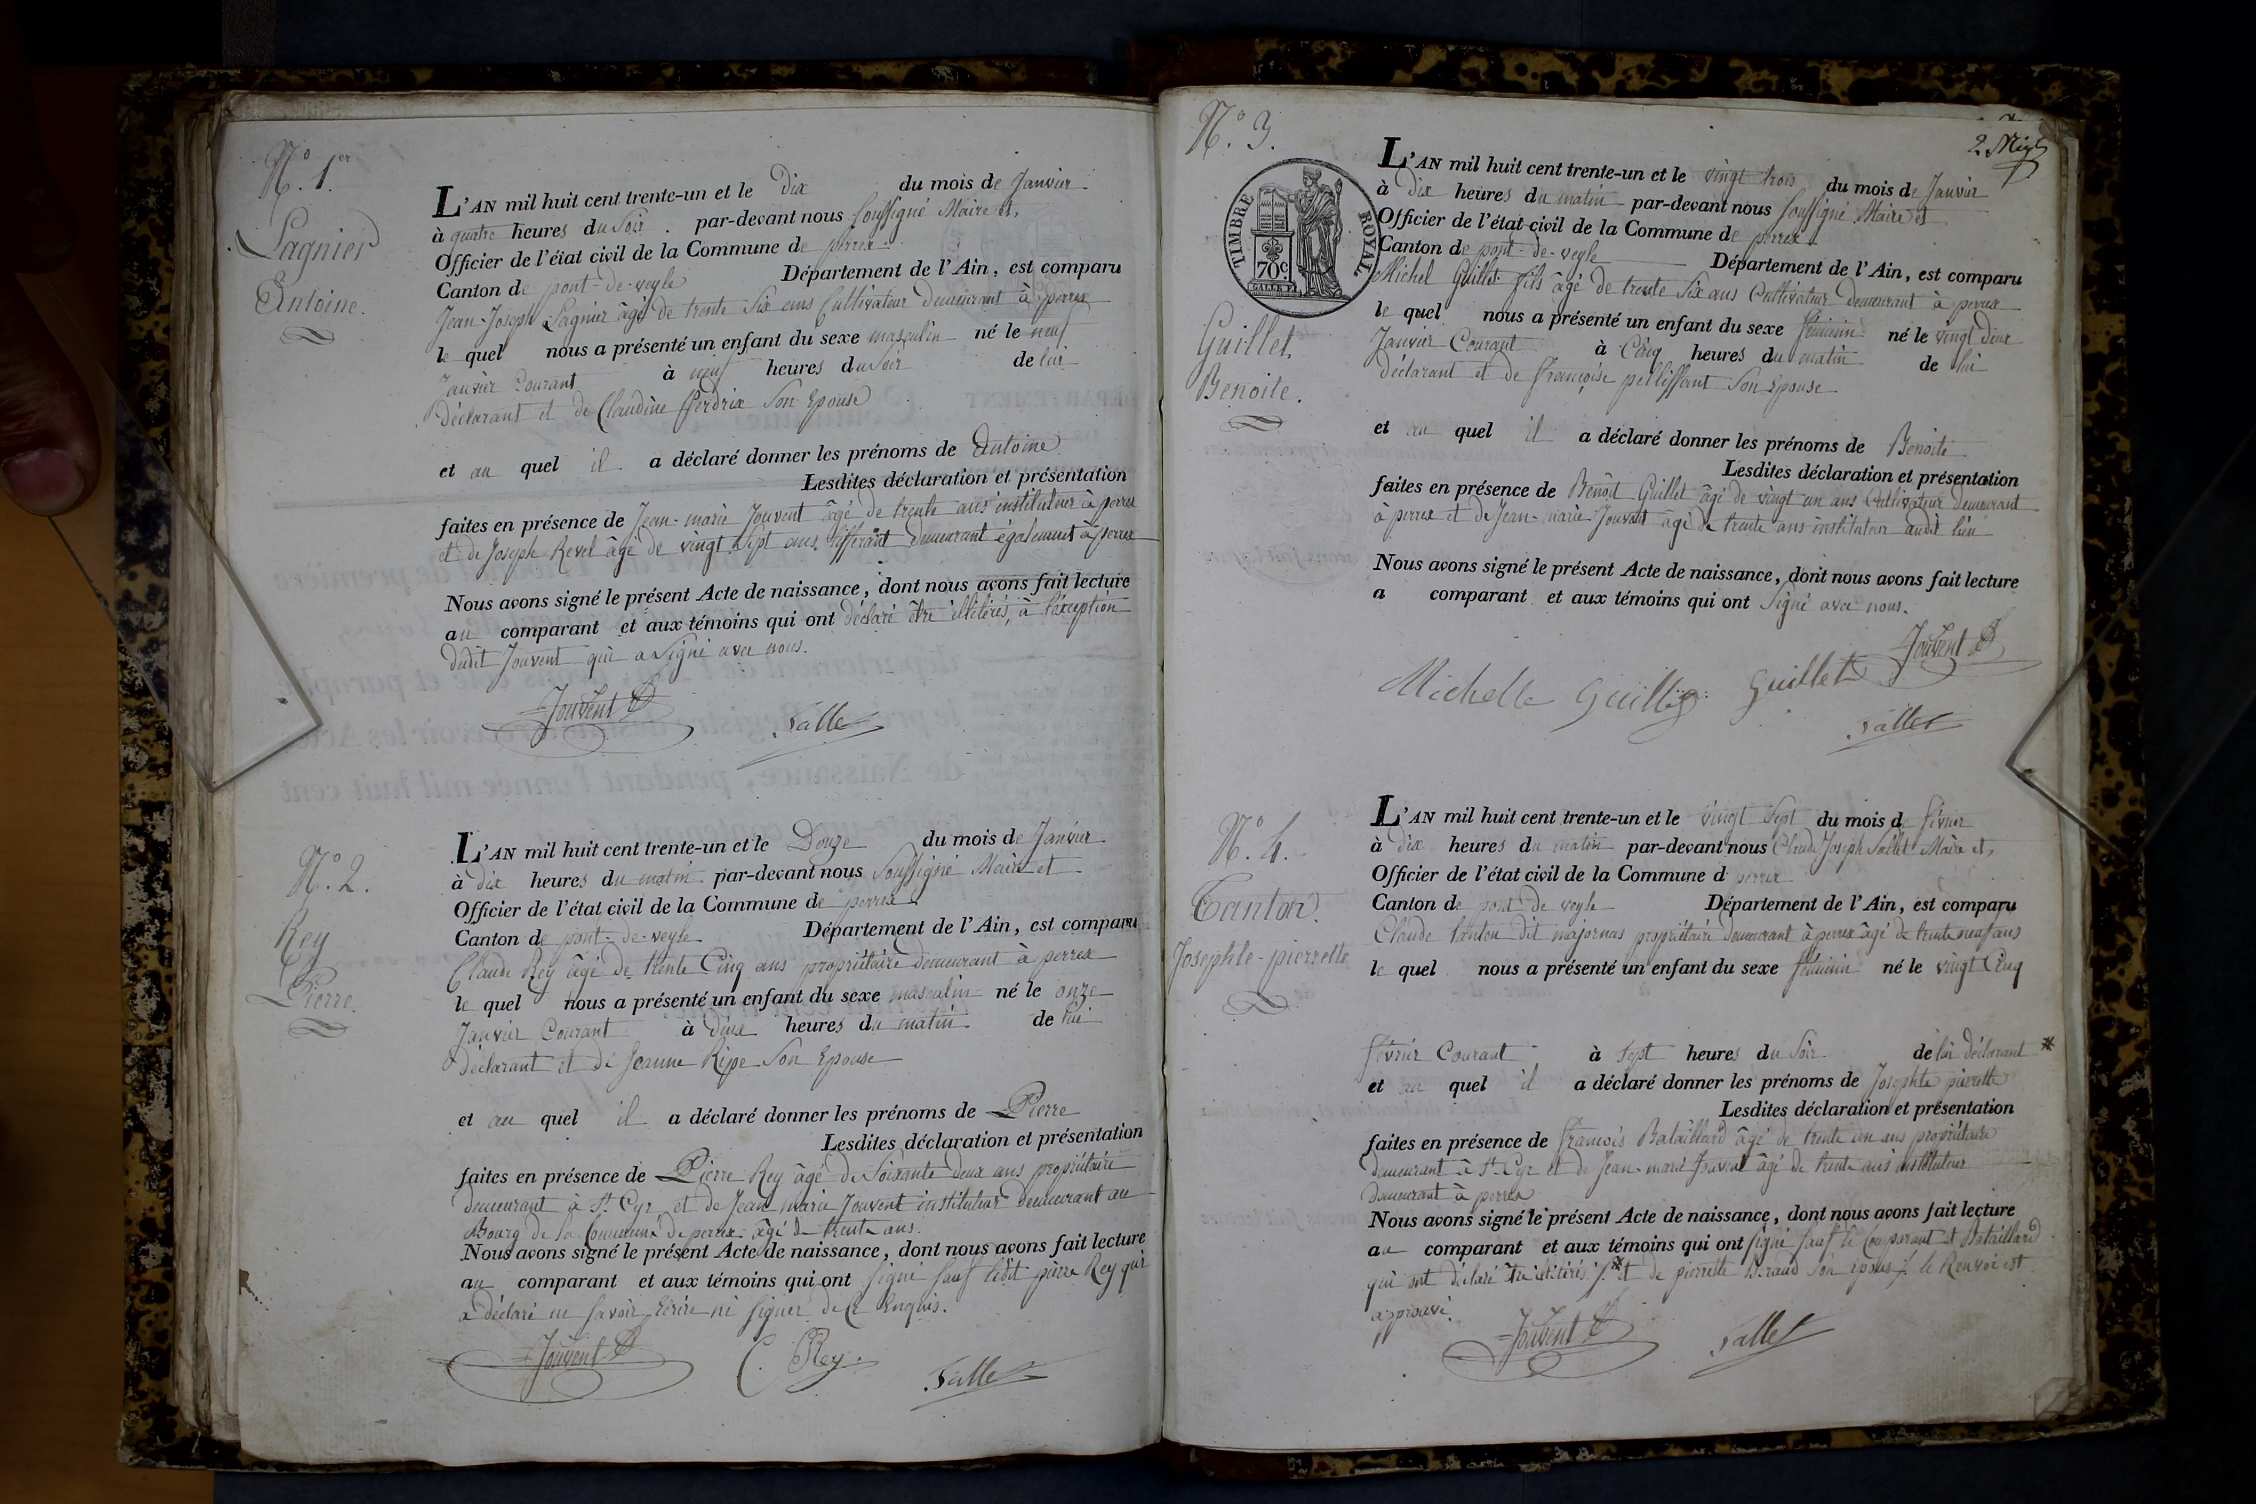 N.o 1.er
Lagnier
Antoine.
L'AN mil huit cent trente-un et le dix du mois de Janvier
à quatre heures du Soir. par-devant nous Soussigné Maire et,
Officier de l'état civil de la Commune de perrex
Canton de pont-de-veyle Département de l'Ain, est comparu
Jean-Joseph Lagnier âgé de trente Six ans Cultivateur Demeurant à perrex
le quel nous a présenté un enfant du sexe masculin né le neuf
Janvier Courant à neuf heures du Soir de lui
Déclarant et de Claudine Perdrix Son Epouse
et au quel il a déclaré donner les prénoms de Antoine
Lesdites déclaration et présentation
faites en présence de Jean-marie Jouvent âgé de trente ans instituteur à perrex
et de Joseph Revel âgé de vingt Sept ans Demeurant également à perrex
Nous avons signé le présent Acte de naissance, dont nous avons fait lecture
au comparant et aux témoins qui ont déclaré être illitérés, à l'exception
dudit Jouvent qui a Signé avec nous.
Jouvent Sallet
N.o 2.
Rey
Pierre.
L'AN mil huit cent trente-un et le Douze du mois de Janvier
à dix heures du matin par-devant nous Soussigné Maire et
Officier de l'état civil de la Commune de perrex
Canton de pont-de-veyle Département de l'Ain, est comparu
Claude Rey âgé de trente Cinq ans propriétaire demeurant à perrex
le quel nous a présenté un enfant du sexe masculin né le onze
Janvier Courant à deux heures du matin de lui
Déclarant et de Jeanne Ripe Son Epouse
et au quel il a déclaré donner les prénoms de Pierre
Lesdites déclaration et présentation
faites en présence de Pierre Rey âgé de Soixante deux ans propriétaire
demeurant à St. Cyr et de Jean marie Jouvent instituteur demeurant au
Bourg de la Commune de perrex âgé de trente ans.
Nous avons signé le présent Acte de naissance, dont nous avons fait lecture
au comparant et aux témoins qui ont signé sauf ledit pierre Rey qui
a déclaré ne savoir écrire ni signer de ce Enquis.
Jouvent C. Rey. Sallet
N.o 3.
TIMBRE ROYAL
70 c.
Guillet.
Benoite.
L'AN mil huit cent trente-un et le vingt trois du mois de Janvier
à dix heures du matin par-devant nous Soussigné Maire et
Officier de l'état civil de la Commune de perrex
Canton de pont-de-veyle Département de l'Ain, est comparu
Michel Guillet fils âgé de trente Six ans Cultivateur Demeurant à perrex
le quel nous a présenté un enfant du sexe féminin né le vingt Deux
Janvier Courant à Cinq heures du matin de lui
Déclarant et de Françoise pellissant Son Epouse
et au quel il a déclaré donner les prénoms de Benoite
Lesdites déclaration et présentation
faites en présence de Benoit Guillet âgé de vingt un ans Cultivateur demeurant
à perrex et de Jean-marie Jouvent âgé de trente ans instituteur audit lieu
Nous avons signé le présent Acte de naissance, dont nous avons fait lecture
a comparant et aux témoins qui ont Signé avec nous.
Jouvent
Michelle Guillet Guillet
Sallet
N.o 4.
Tanton.
Josephte-pierrette
L'AN mil huit cent trente-un et le vingt Sept du mois de février
à dix heures du matin par-devant nous Claude Joseph Sallet Maire et,
Officier de l'état civil de la Commune d perrex
Canton de pont de veyle Département de l'Ain, est comparu
Claude tonton dit majornas propriétaire demeurant à perrex âgé de trente neuf ans
le quel nous a présenté un enfant du sexe féminin né le vingt Cinq
février Courant à Sept heures du Soir de lui déclarant *
et au quel il a déclaré donner les prénoms de Josephte pierrette
Lesdites déclaration et présentation
faites en présence de François Bataillard âgé de trente un ans propriétaire
demeurant à St. Cyr et de Jean-marie Jouvent âgé de trente ans instituteur
demeurant à perrex
Nous avons signé le présent Acte de naissance, dont nous avons fait lecture
au comparant et aux témoins qui ont signé sauf le Comparant et Bataillard
qui ont déclaré être illitérés /. * et de pierrette Giraud Son épouse /. le Renvoi est
approuvé.
Jouvent Sallet